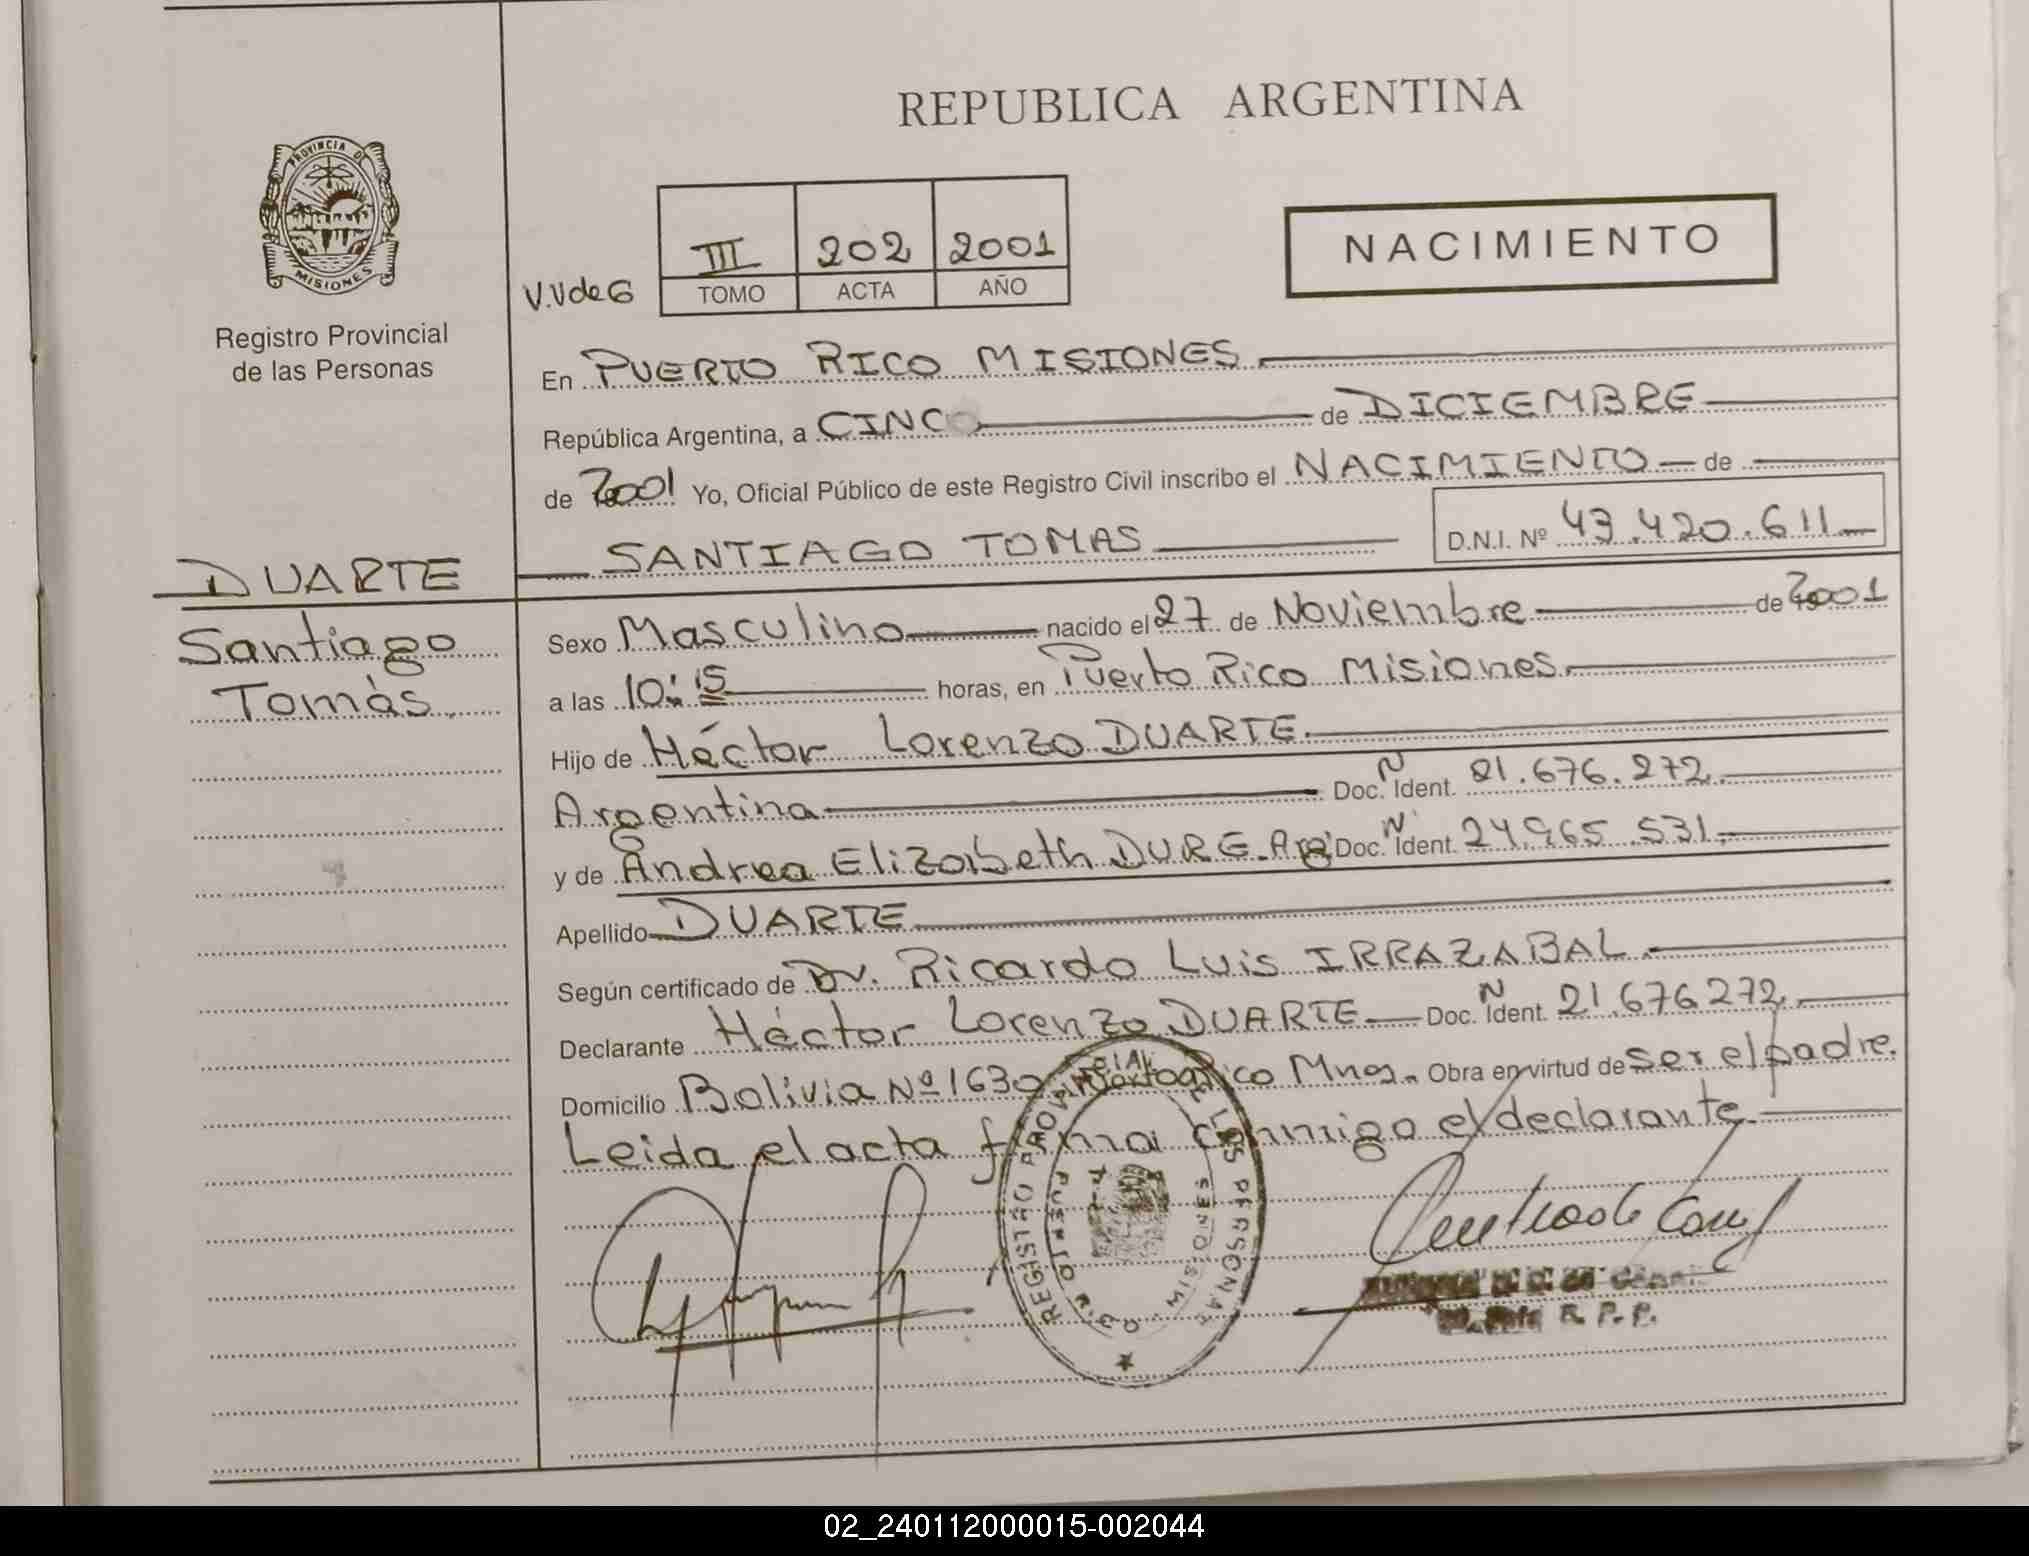 REPUBLICA ARGENTINA
PROVINCIA DE
MISIONES
Registro Provincial
de las Personas
V.V de G
III 202 2001
TOMO ACTA AÑO
NACIMIENTO
En PUERTO RICO MISIONES
República Argentina, a CINCO de DICIEMBRE
de 2001 Yo, Oficial Público de este Registro Civil inscribo el NACIMIENTO de
SANTIAGO TOMAS D.N.I. Nº 43.420.611
DUARTE
Santiago
Tomás
Sexo Masculino nacido el 27 de Noviembre de 2001
a las 10:15 horas, en Puerto Rico Misiones
Hijo de Héctor Lorenzo DUARTE
Argentina Doc. N Ident. 21.676.272
y de Andrea Elizabeth DURE. Arg. Doc. N Ident. 24.965.531
Apellido DUARTE
Según certificado de Dr. Ricardo Luis IRRAZABAL
Declarante Héctor Lorenzo DUARTE Doc. N Ident. 21.676272
Domicilio Bolivia Nº 1630 Puerto Rico Mnes. Obra en virtud de ser el padre.
Leida el acta firma conmigo el declarante
REGISTRO PROVINCIAL DE LAS PERSONAS
PUERTO RICO
MISIONES
R. P. P.
02_240112000015-002044